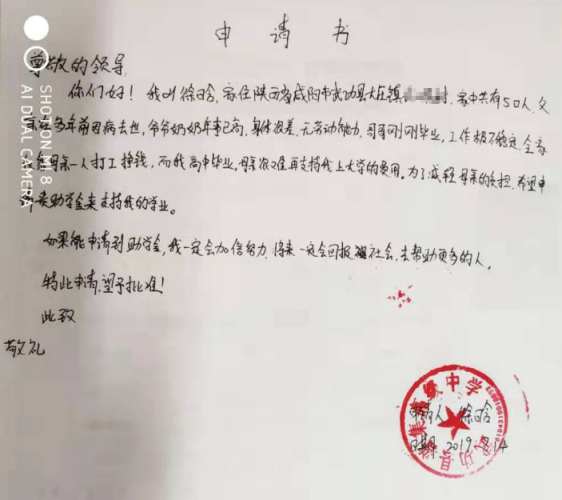 申请书
尊敬的领导
你们好！我叫徐晗，家住陕西省咸阳市武功县大庄镇 村，家中共有5口人，父
亲在多年前因病去世，爷爷奶奶年事已高，身体很差，无劳动能力，哥哥刚刚毕业，工作极不稳定，全家
母亲一人打工挣钱，而我高中毕业，母亲很难再支持我上大学的费用。为了减轻母亲的负担，希望申
助学金来支持我的学业。
如果能申请到助学金，我一定会加倍努力，将来一定会回报社会，去帮助更多的人。
特此申请，望予批准！
此致
敬礼
级中学
申请人 徐晗
日期 2019.7.14
武功县
SHOT ON MI 8
AI DUAL CAMERA